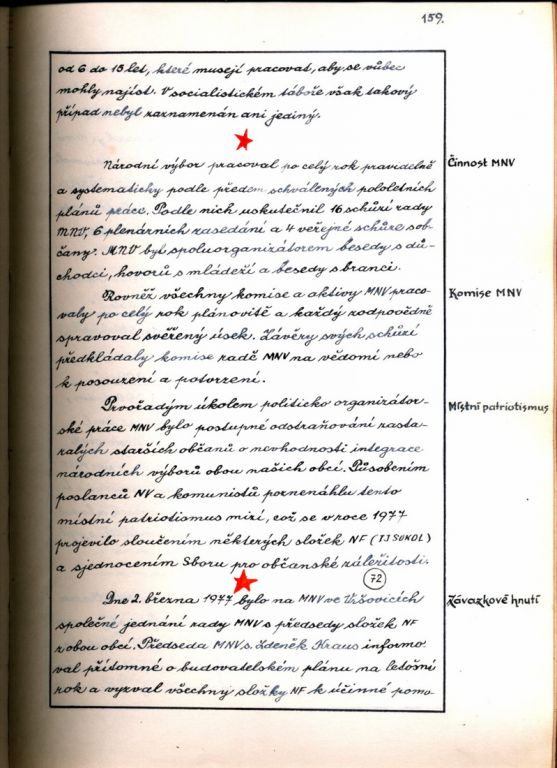 159.
od 6 do 15 let, které musejí pracovat, aby se vůbec
mohly najíst. V socialistickém táboře však takový
případ nebyl zaznamenán ani jediný.
Národní výbor pracoval po celý rok pravidelně
Činnost MNV
a systematicky podle předem schválených pololetních
plánů práce. Podle nich uskutečnil 16 schůzí rady
MNV, 6 plenárních zasedání a 4 veřejné schůze s ob-
čany. MNV byl spoluorganizátorem besedy s dů-
chodci, hovorů s mládeží a besedy s branci.
Rovněž všechny komise a aktivy MNV praco-
Komise MNV
valy po celý rok plánovitě a každý zodpovědně
spravoval svěřený úsek. Závěry svých schůzí
předkládaly komise radě MNV na vědomí nebo
k posouzení a potvrzení.
Prvořadým úkolem politicko organizátor-
Místní patriotismus
ské práce MNV bylo postupné odstraňování zasta-
ralých starších občanů o nevhodnosti integrace
národních výborů obou našich obcí. Působením
poslanců NV a komunistů poznenáhlu tento
místní patriotismus mizí, což se v roce 1977
projevilo sloučením některých složek NF (TJ SOKOL)
a sjednocením Sboru pro občanské záležitosti.
72
Dne 2. března 1977 bylo na MNV ve Vršovicích
Závazkové hnutí
společné jednání rady MNV s předsedy složek NF
z obou obcí. Předseda MNV s. Zdeněk Kraus informo
val přítomné o budovatelském plánu na letošní
rok a vyzval všechny složky NF k účinné pomo